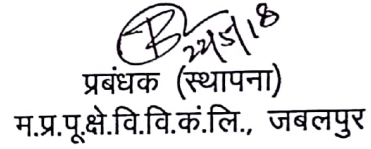 22/5/18
प्रबंधक (स्थापना)
म.प्र.पू.क्षे.वि.वि.कं.लि., जबलपुर